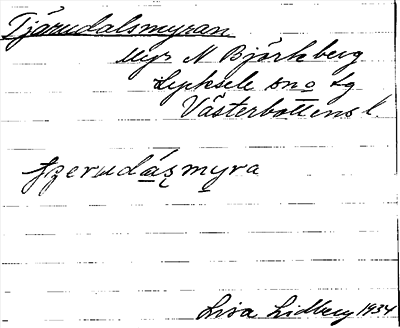 Tjärudalsmyran
Myr N Björkberg
Lycksele sn o tg
Västerbottens l
Lisa Lidberg 1934